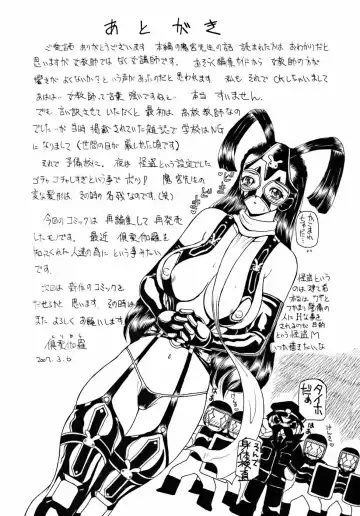 あとがき
ご愛読ありがとうございます 本編の鷹宮先生の話 読まれた方はおわかりだと
思いますが 女教師ではなくて講師です。 おそらく編集サイドから 女教師の方が
響きがよくないか?という声があったのだと思われます 私も それでOKしちゃいまして
あはは… 女教師って言葉 強いですね… 本当 すいません。
でも言い訳させていただくと 最初は 高校教師なの
でした…が 当時 掲載されていた雑誌で学校はNG
になりまして(世間の目が厳しかった頃です)
それで予備校に。 夜は 怪盗という設定でした
ゴチャゴチャしすぎという事で ボツ! 鷹宮先生の
変な髪形は その時の名残なのです。(笑)
今回のコミックは 再編集して 再発売
したモノです。 最近 倶梨伽羅を
知ってくれた人達の為に という事みたい
です。
次回は 新作のコミックを
だせるかと 思います その時は
また よろしくお願いします
倶梨伽羅
2007. 3. 6
怪盗という
のは 建て前
本当は ワザと
つかまり 警備の
人に Hな事を
されるのが 目的
という怪盗M
いつか描きたいな
タイホ
だぁ
身体検査